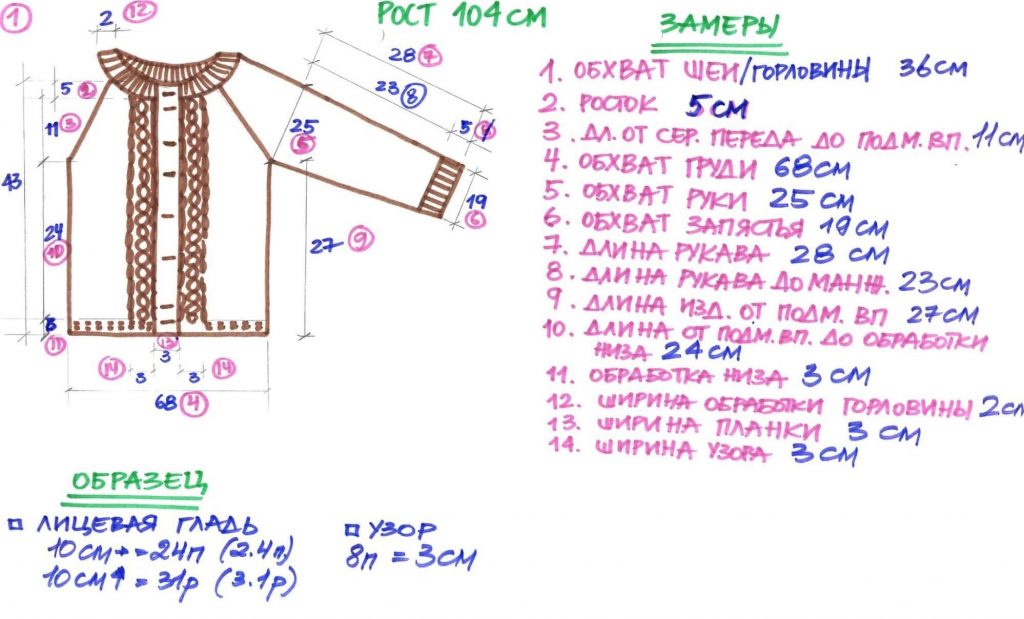 1
2 12
РОСТ 104 СМ
28 7
23 8
5
5 2
11 3
25 5
19 6
43
24
10
27 9
3
11
13
3
14 3 3 14
68 4
ЗАМЕРЫ
1. ОБХВАТ ШЕИ/ГОРЛОВИНЫ 36СМ
2. РОСТОК 5СМ
3. ДЛ. ОТ СЕР. ПЕРЕДА ДО ПОДМ. ВП. 11СМ
4. ОБХВАТ ГРУДИ 68СМ
5. ОБХВАТ РУКИ 25 СМ
6. ОБХВАТ ЗАПЯСТЬЯ 19СМ
7. ДЛИНА РУКАВА 28 СМ
8. ДЛИНА РУКАВА ДО МАНЖ. 23СМ
9. ДЛИНА ИЗД. ОТ ПОДМ. ВП 27СМ
10. ДЛИНА ОТ ПОДМ. ВП. ДО ОБРАБОТКИ
НИЗА 24СМ
11. ОБРАБОТКА НИЗА 3 СМ
12. ШИРИНА ОБРАБОТКИ ГОРЛОВИНЫ 2СМ
13. ШИРИНА ПЛАНКИ 3 СМ
14. ШИРИНА УЗОРА 3 СМ
ОБРАЗЕЦ
ЛИЦЕВАЯ ГЛАДЬ
10СМ → = 24П (2.4П)
10СМ ↑ = 31Р (3.1Р)
УЗОР
8П = 3СМ